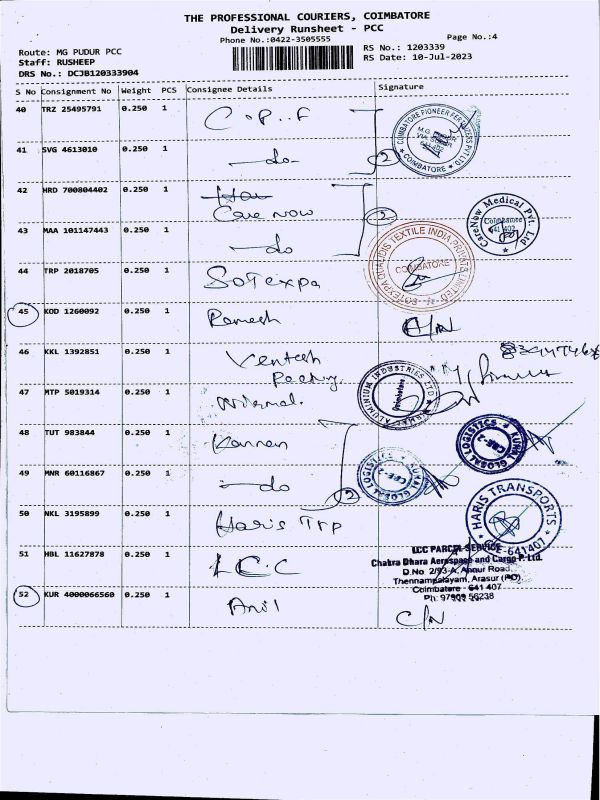 THE PROFESSIONAL COURIERS, COIMBATORE
Delivery Runsheet - PCC
Phone No.:0422-3505555
Page No.:4
Route: MG PUDUR PCC
RS No.: 1203339
Staff: RUSHEEP
RS Date: 10-Jul-2023
DRS No.: DCJB120333904
S No Consignment No Weight PCS Consignee Details Signature
40 TRZ 25495791 0.250 1 C.P..F
COIMBATORE PIONEER FERTILIZERS PVT LTD
COIMBATORE
41 SVG 4613010 0.250 1 do 2
42 HRD 700804402 0.250 1
Care Now 2
CareNow Medical Pvt. Ltd
Coimbatore
641 402
43 MAA 101147443 0.250 1 do
SOTEXPA QUALIDIS TEXTILE INDIA PRIVATE LIMITED
COIMBATORE
44 TRP 2018705 0.250 1 Sotexpa
45 KOD 1260092 0.250 1 Ramesh
46 KKL 1392851 0.250 1 Venkesh
Packing
47 MTP 5019314 0.250 1 Nirmal.
ALUMINIUM INDUSTRIES LTD.
Coimbatore
48 TUT 983844 0.250 1 Kannan
KURAL GLOBAL LOGISTICS
CBE-2
49 MNR 60116867 0.250 1 do 2
KURAL GLOBAL LOGISTICS
CBE-2
50 NKL 3195899 0.250 1 Haris Trp
HARIS TRANSPORTS
641407
51 HBL 11627878 0.250 1 L.C.C
LCC PARCEL SERVICE
Chakra Dhara Aerospace and Cargo P. Ltd.
D.No. 2/93-A, Annur Road,
Thennampalayam, Arasur (PO)
Coimbatore - 641 407
Ph: 97909 56238
52 KUR 4000066560 0.250 1 Anil C/N